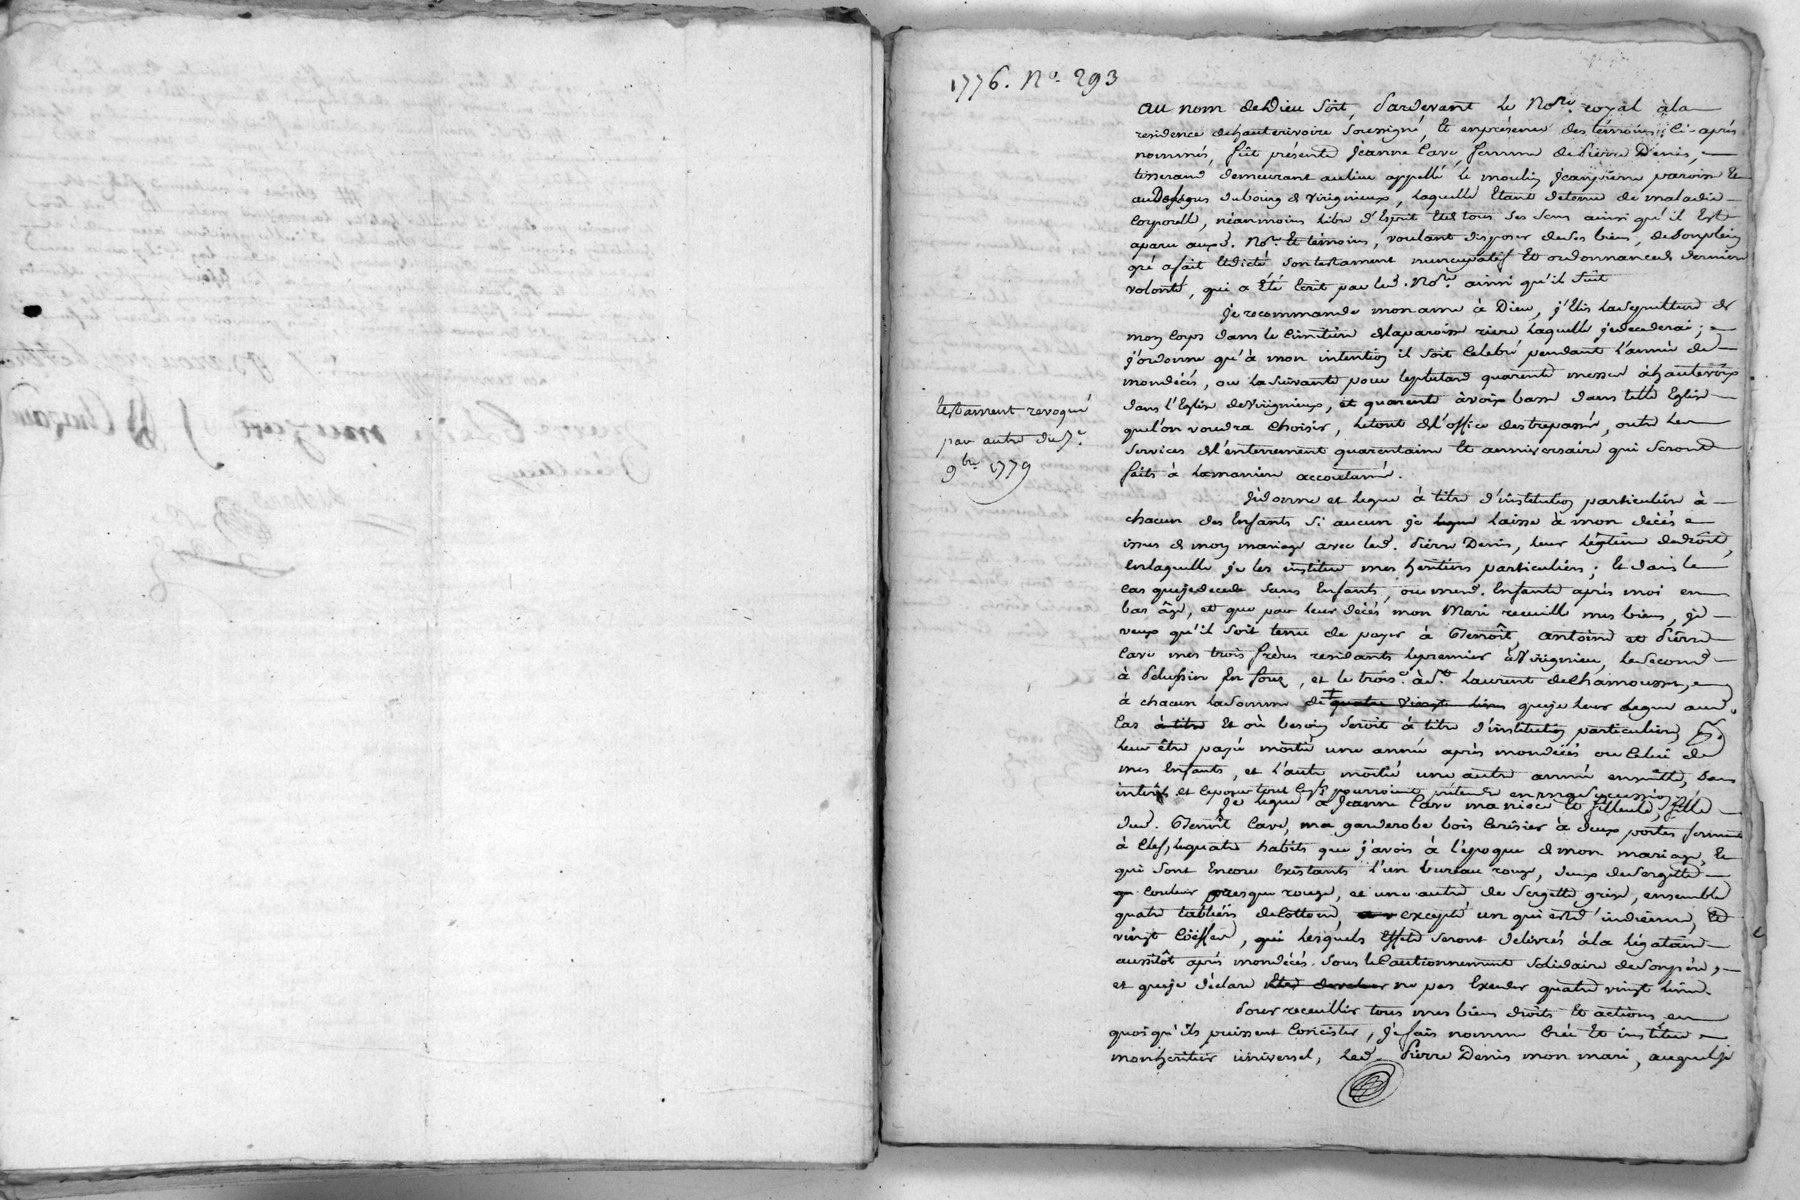 1776. No. 293
au nom de Dieu soit, pardevant le Nore. royal à la
residence de hauterivoire soussigné, et en présence des témoins ci-après
nommés, fût présente Jeanne Cave, femme de Pierre Denis,
tisserand demeurant au lieu appellé le moulin Jeanpierre paroisse et
au Dessous du bourg de Virignieux, laquelle Etant detenue de maladie
corporelle, néanmoins libre d'Esprit et de tous ses sens ainsi qu'il Est
aparu auxd. Nore. Et témoins, voulant disposer de ses biens, de son plein
gré a fait et dicté son testament nuncupatif et ordonnance de derniere
volonté, qui a Été Ecrit par led. Nore. ainsi qu'il suit
Je recommande mon ame à Dieu, j'Elis la sepulture de
mon corps dans le cimetiere de la paroisse riere laquelle je decederai;
j'ordonne qu'à mon intention il soit celebré pendant l'année de
mon décès, ou la suivante pour le plutard quarente messes à haute voix
dans l'Eglise de Virignieux, et quarente à voix basse dans telle Eglise
que l'on voudra choisir, le tout de l'office des trepassés, outre les
services de l'enterrement quarentaine et anniversaire qui seront
faits à la maniere accoutumé.
testament revoqué
par autre du 7e.
9bre 1779
Je donne et legue à titre d'institution particuliere à
chacun des Enfants si aucun je legue laisse à mon décès
issus de mon mariage avec led. Pierre Denis, leur legitime de droit,
en laquelle je les institue mes heritiers particuliers; et dans le
cas que je decede sans Enfants, ou mesd. Enfants après moi en
bas âge, et que par leur décès mon Mari recueille mes biens, je
veux qu'il soit tenu de payer à Benoît, antoine et Pierre
Cave mes trois freres residants le premier à Virignieu, le second
à Pelussin En forez, et le trois.e à St. Laurent de Chamousset,
à chacun la somme de quatre vingt livres que je leur legue aud.
Cas à titre Et où besoin seroit à titre d'institution particuliere
leur être payé moitié une année après mon décès ou celui de
mes Enfants, et l'autre moitié une autre année ensuitte, sans
interêts et ce pour tout ce qu'ils pourroient prétendre en ma succession
Je legue à Jeanne Cave ma niece et filleule, fille
dud. Benoît Cave, ma garderobe bois cerisier à deux portes fermant
à Clef, les quatre habits que j'avois à l'époque de mon mariage, et
qui sont Encore Existants l'un bureau rouge, deux de sergette
couleur presque rouge, et une autre de sergette grise, ensemble
quatre tabliers de cotton, excepté un qui est d'indienne, et
vingt Coëffes, qui lesquels Effets seront delivrés à la légataire
aussitôt après mon décès sous le Cautionnement solidaire de son père,
et que je déclare ne pas Exceder quatre vingt livres.
Pour receuillir tous mes biens droits et actions en
quoi qu'ils puissent Concister, J'ai fais nommé Créé Et institue
mon heritier universel, led. Pierre Denis mon mari, auquel je